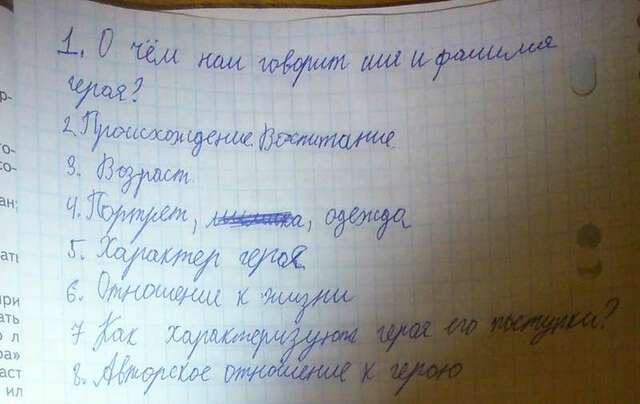 1. О чём нам говорит имя и фамилия
героя?
2. Происхождение. Воспитание.
3. Возраст.
4. Портрет, одежда
5. Характер героя
6. Отношение к жизни
7 Как характеризуют героя его поступки?
8. Авторское отношение к герою
р-
го-
со-
ан;
ать
при
ать
о л
ра»
аст
ил